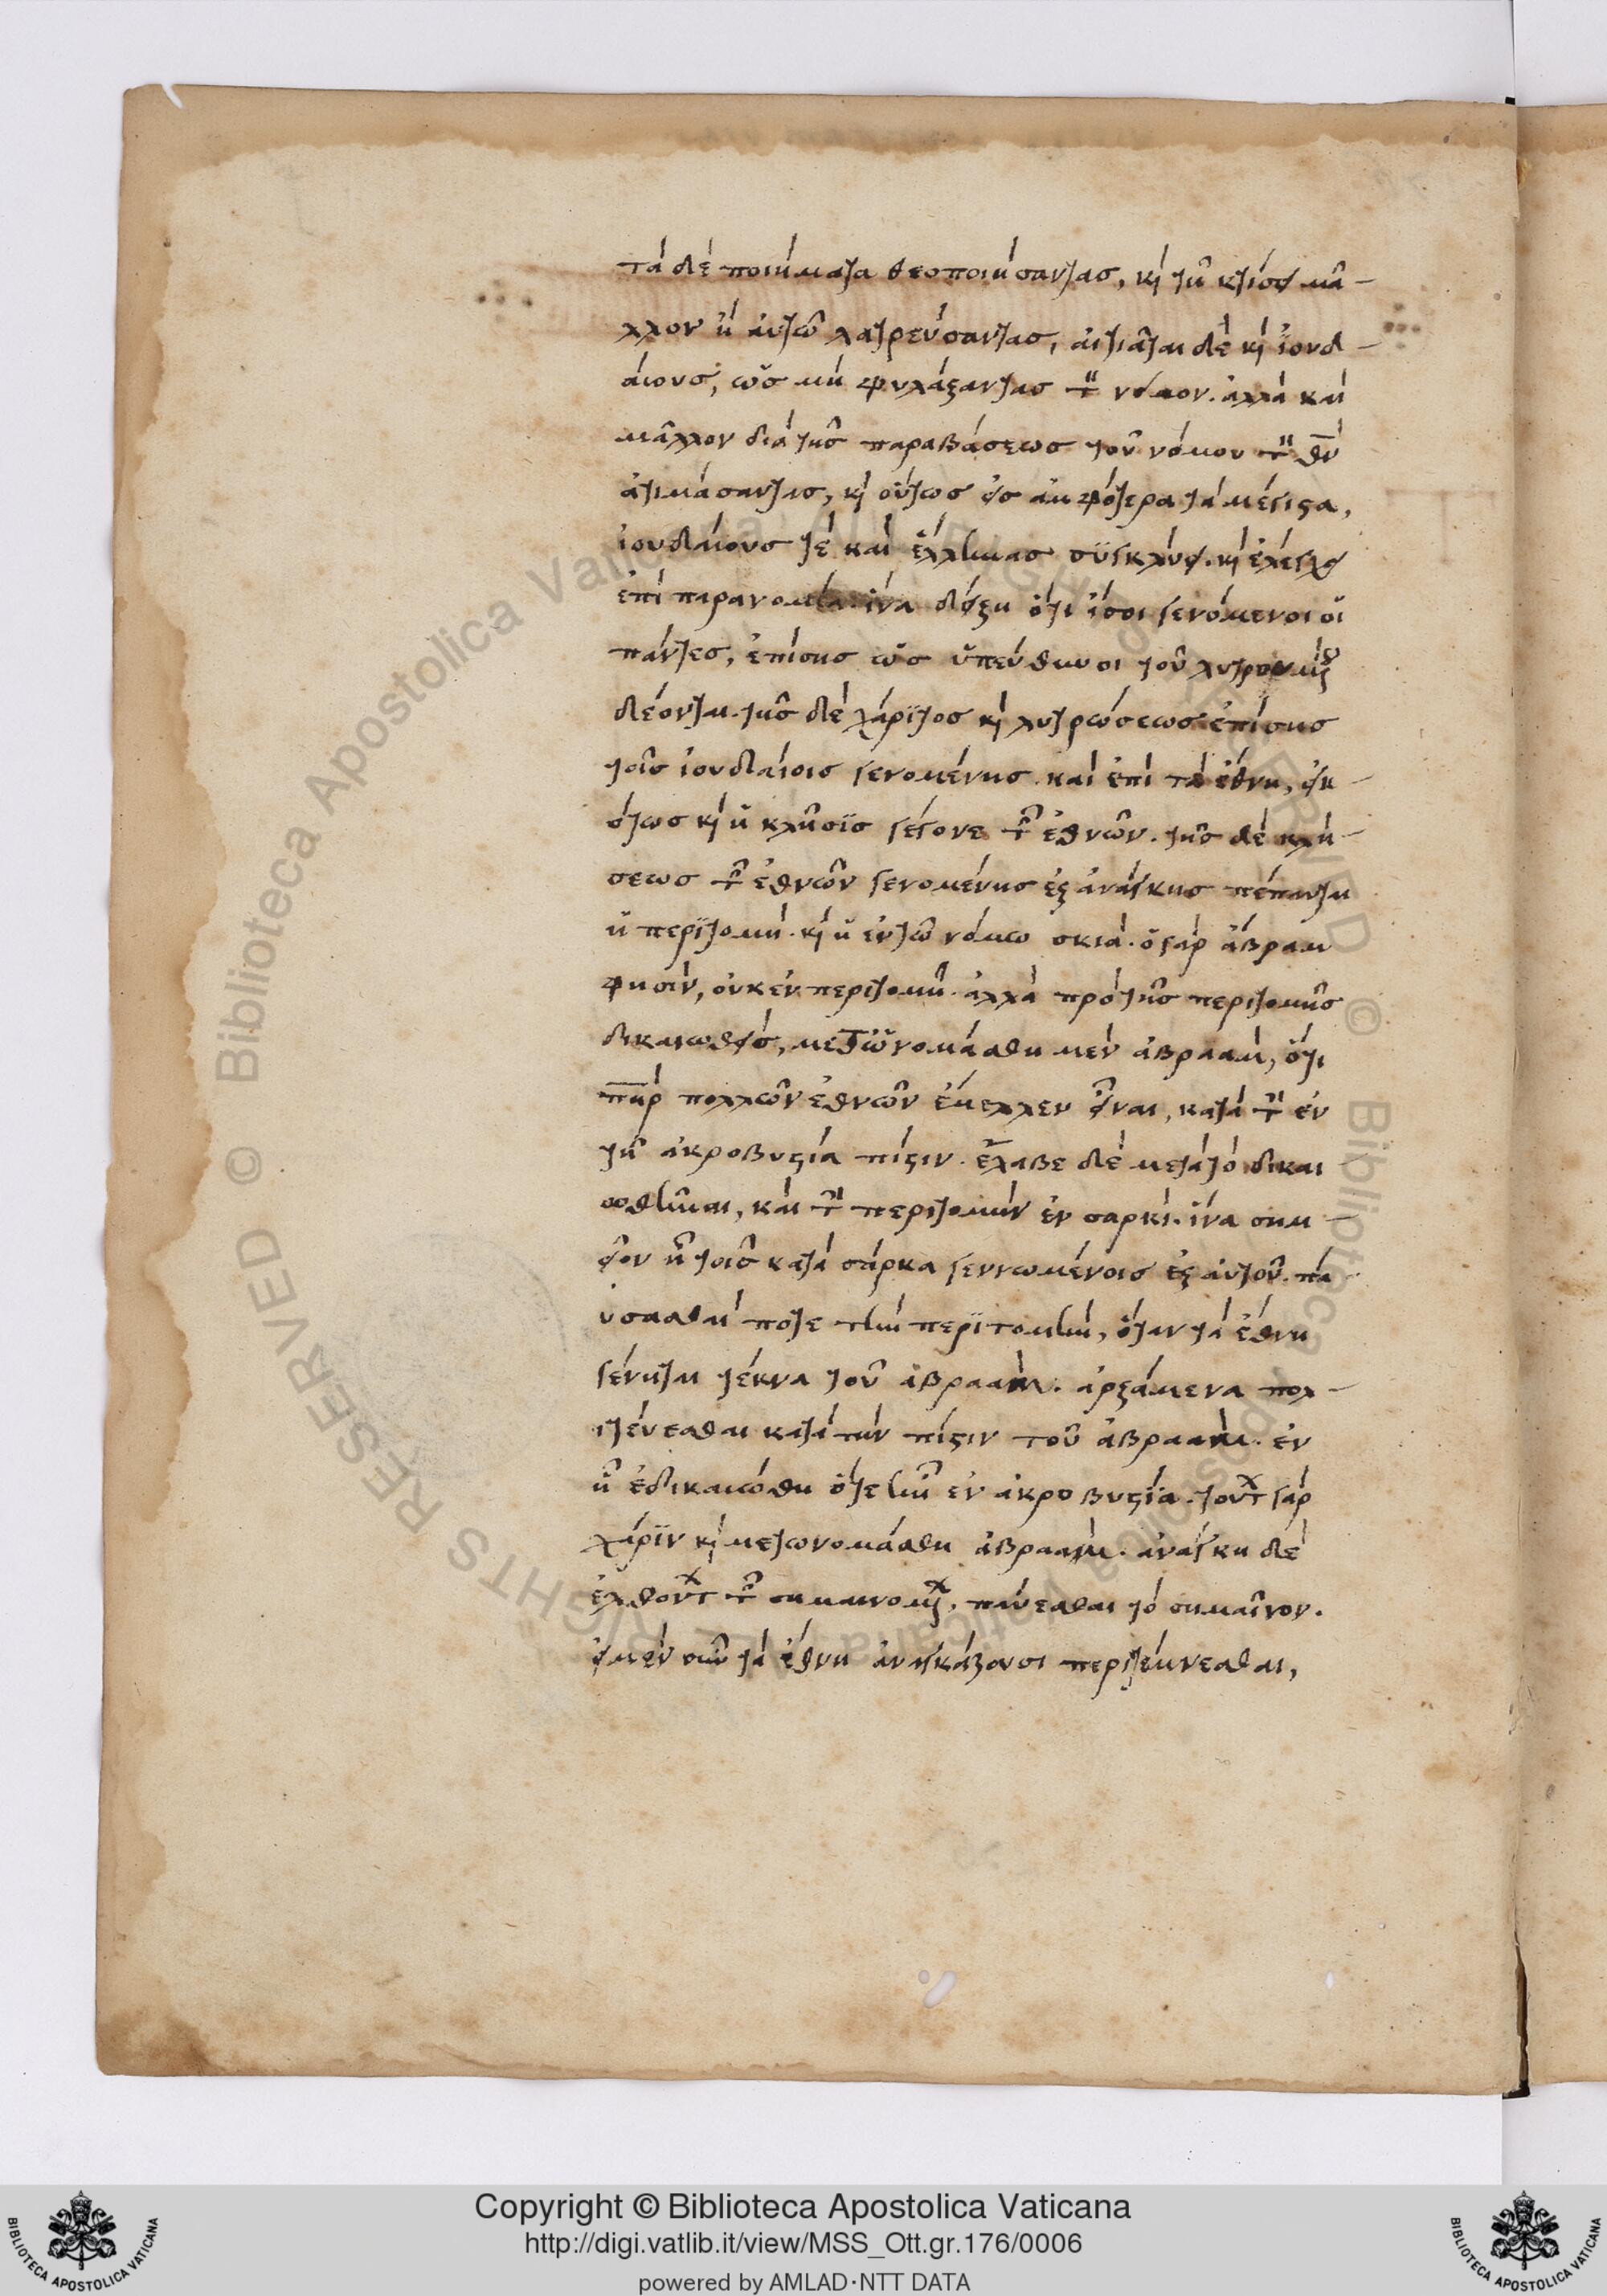 τὰ δὲ ποιήματα θεοποιήσαντας, κὶ τῆ κτίσει μᾶ-
λλον ἢ αὐτῶ λατρεύσαντας, αἰτιᾶται δὲ κὶ ἰουδ-
άιους, ὡς μὴ φυλάξαντας τ̀ νόμον. ἀλλὰ καὶ
μᾶλλον διὰ τῆς παραβάσεως τοῦ νόμου τ̀ θν̅
ἀτιμάσαντας, κὶ οὕτως εἰς ἀμφότερα τὰ μέγιστα,
ἰουδαίους τὲ καὶ ἕλληνας συγκλύει. κὶ ἐλέγχει
ἐπὶ παρανομία. ἵνα δείξη ὅτι ἴσοι γενόμενοι οἱ
πάντες, ἐπίσης ὡς ὑπεύθυνοι τοῦ λυτρουμ
δέονται. τῆς δὲ χάριτος κὶ λυτρώσεως ἐπίσης
τοῖς ἰουδαίοις γενομένης. καὶ ἐπὶ τὰ ἔθνη, εἰκ-
ότως κὶ ἡ κλῆσις γέγονε τ῀ ἐθνῶν. τῆς δὲ κλή-
σεως τ῀ ἐθνῶν γενομένης ἐξ ἀνάγκης πέπαυται
ἡ περιτομὴ. κὶ ἡ ἐν τῶ νόμω σκιὰ. ὁ γὰρ ἄβραμ
φησὶν, οὐκ ἐν περιτομῆ. ἀλλὰ πρὸ τῆς περιτομῆς
δικαιωθεὶς, μετωνομάσθη μὲν ἀβραὰμ, ὅτι
πηρ̅ πολλῶν ἐθνῶν ἔμελλεν εἶναι, κατὰ τ̀ ἐν
τῆ ἀκροβυστία πίστιν. ἔλαβε δὲ μετὰ τὸ δικαι
ωθῆναι, καὶ τ̀ περιτομὴν ἐν σαρκὶ. ἵνα σημ-
εῖον ἦ τοῖς κατὰ σάρκα γεννωμένοις ἐξ αὐτοῦ. πα-
ύσασθαί ποτε τὴν περιτομὴν, ὅταν τὰ ἔθνη
γένηται τέκνα τοῦ ἀβραὰμ. ἀρξάμενα πολ-
ιτεύεσθαι κατὰ τὴν πίστιν τοῦ ἀβραὰμ. ἐν
ἧ ἐδικαιώθη ὅτε ἦν ἐν ἀκροβυστία. τούτ γὰρ
χάριν κὶ μετωνομάσθη ἀβραὰμ. ἀνάγκη δὲ
ἐλθόντ τ῀ σημαινομ, παύεσθαι τὸ σημαῖνον.
εἰ μὲν οὖν τὰ ἔθνη ἀναγκάζουσι περιτέμνεσθαι,
Copyright © Biblioteca Apostolica Vaticana
http://digi.vatlib.it/view/MSS_Ott.gr.176/0006
powered by AMLAD·NTT DATA